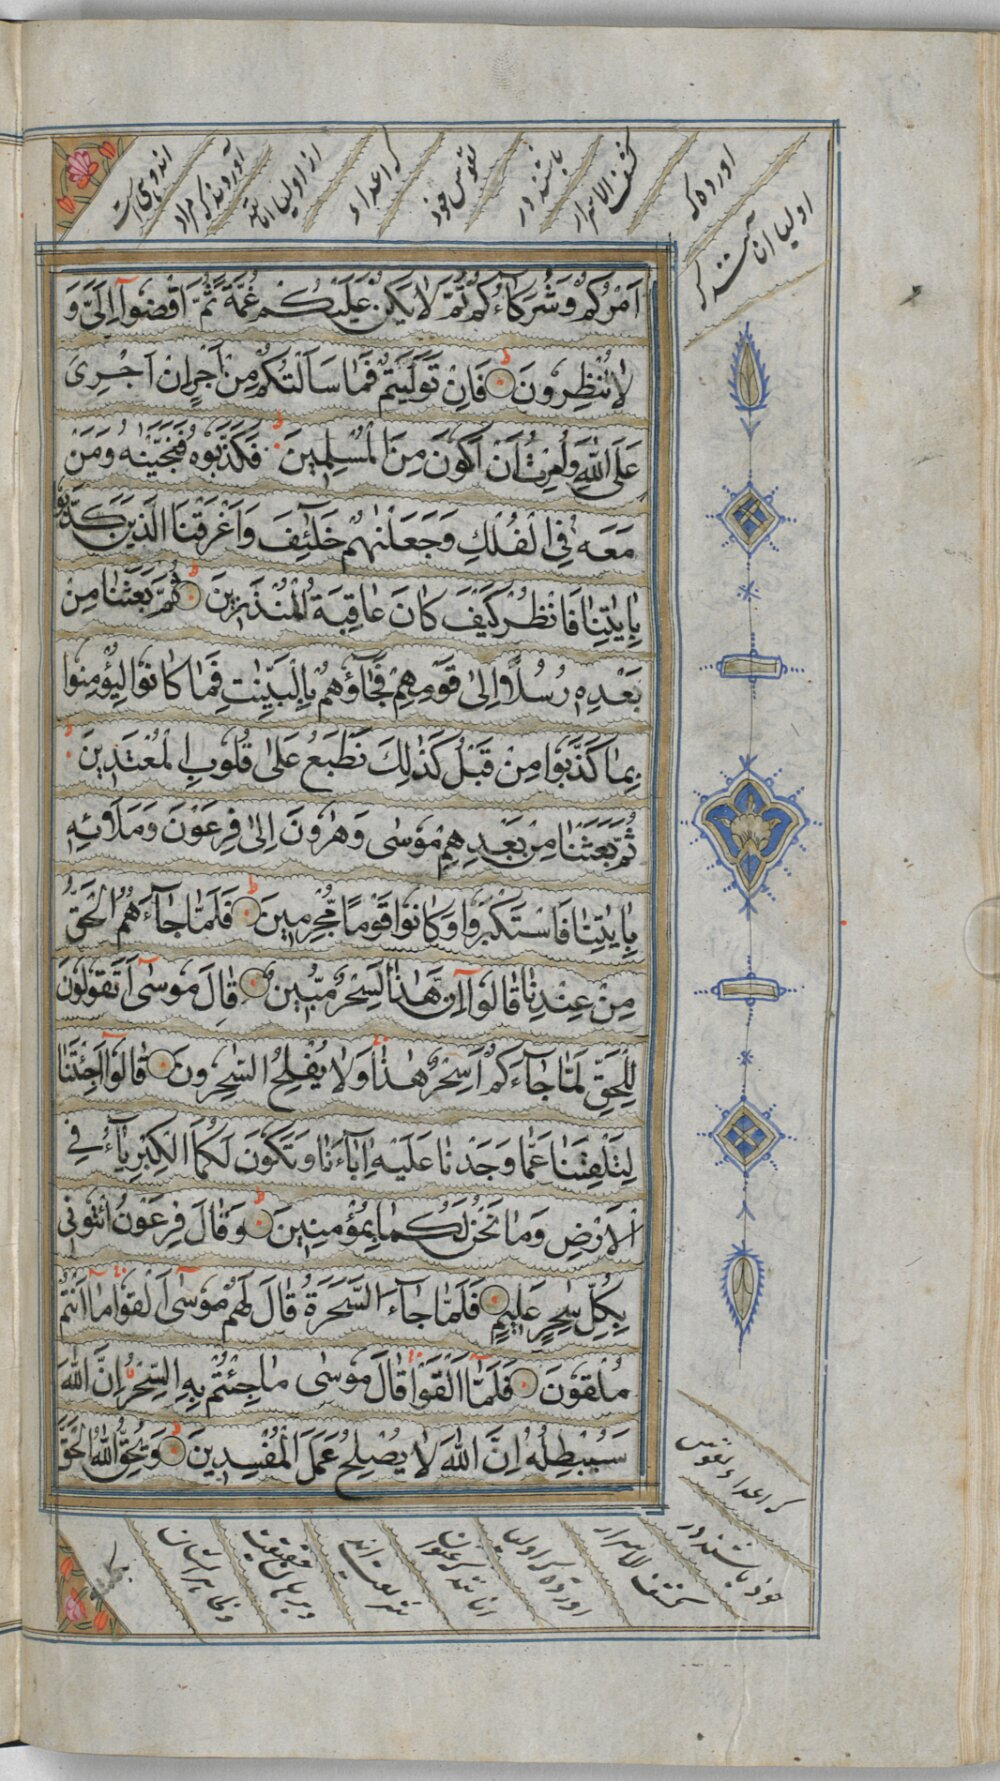 اولیا آنانند که
آورده که
کشف الاسرار
باشند در
نفوس خود
که اعداء
از اولیا آنانند
آوردند که مراد
اَمْرَكُمْ وَشُرَكَآءَكُمْ ثُمَّ لَا يَكُنْ عَلَيْكُمْ غُمَّةً ثُمَّ اقْضُوٓا اِلَيَّ وَ
لَا تُنْظِرُونَ فَاِنْ تَوَلَّيْتُمْ فَمَا سَاَلْتُكُمْ مِنْ اَجْرٍ اِنْ اَجْرِىَ
عَلَى اللّٰهِ وَاُمِرْتُ اَنْ اَكُونَ مِنَ الْمُسْلِمِينَ فَكَذَّبُوهُ فَنَجَّيْنٰهُ وَمَنْ
مَعَهُ فِى الْفُلْكِ وَجَعَلْنٰهُمْ خَلٰٓئِفَ وَاَغْرَقْنَا الَّذِينَ كَذَّبُوا
بِاٰيٰتِنَا فَانْظُرْ كَيْفَ كَانَ عَاقِبَةُ الْمُنْذَرِينَ ثُمَّ بَعَثْنَا مِنْ
بَعْدِهِ رُسُلًا اِلٰى قَوْمِهِمْ فَجَآؤُهُمْ بِالْبَيِّنٰتِ فَمَا كَانُوا لِيُؤْمِنُوا
بِمَا كَذَّبُوا مِنْ قَبْلُ كَذٰلِكَ نَطْبَعُ عَلٰى قُلُوبِ الْمُعْتَدِينَ
ثُمَّ بَعَثْنَا مِنْ بَعْدِهِمْ مُوسٰى وَهٰرُونَ اِلٰى فِرْعَوْنَ وَمَلَا۟ئِهِ
بِاٰيٰتِنَا فَاسْتَكْبَرُوا وَكَانُوا قَوْمًا مُجْرِمِينَ فَلَمَّا جَآءَهُمُ الْحَقُّ
مِنْ عِنْدِنَا قَالُوٓا اِنَّ هٰذَا لَسِحْرٌ مُبِينٌ قَالَ مُوسٰٓى اَتَقُولُونَ
لِلْحَقِّ لَمَّا جَآءَكُمْ اَسِحْرٌ هٰذَا وَلَا يُفْلِحُ السّٰحِرُونَ قَالُوٓا اَجِئْتَنَا
لِتَلْفِتَنَا عَمَّا وَجَدْنَا عَلَيْهِ اٰبَآءَنَا وَتَكُونَ لَكُمَا الْكِبْرِيَآءُ فِى
الْاَرْضِ وَمَا نَحْنُ لَكُمَا بِمُؤْمِنِينَ وَقَالَ فِرْعَوْنُ ائْتُونِى
بِكُلِّ سٰحِرٍ عَلِيمٍ فَلَمَّا جَآءَ السَّحَرَةُ قَالَ لَهُمْ مُوسٰٓى اَلْقُوا مَآ اَنْتُمْ
مُلْقُونَ فَلَمَّآ اَلْقَوْا قَالَ مُوسٰى مَا جِئْتُمْ بِهِ السِّحْرُ اِنَّ اللّٰهَ
سَيُبْطِلُهُ اِنَّ اللّٰهَ لَا يُصْلِحُ عَمَلَ الْمُفْسِدِينَ وَيُحِقُّ اللّٰهُ الْحَقَّ
که اعداء نفوس
خود باشند در
کشف الاسرار